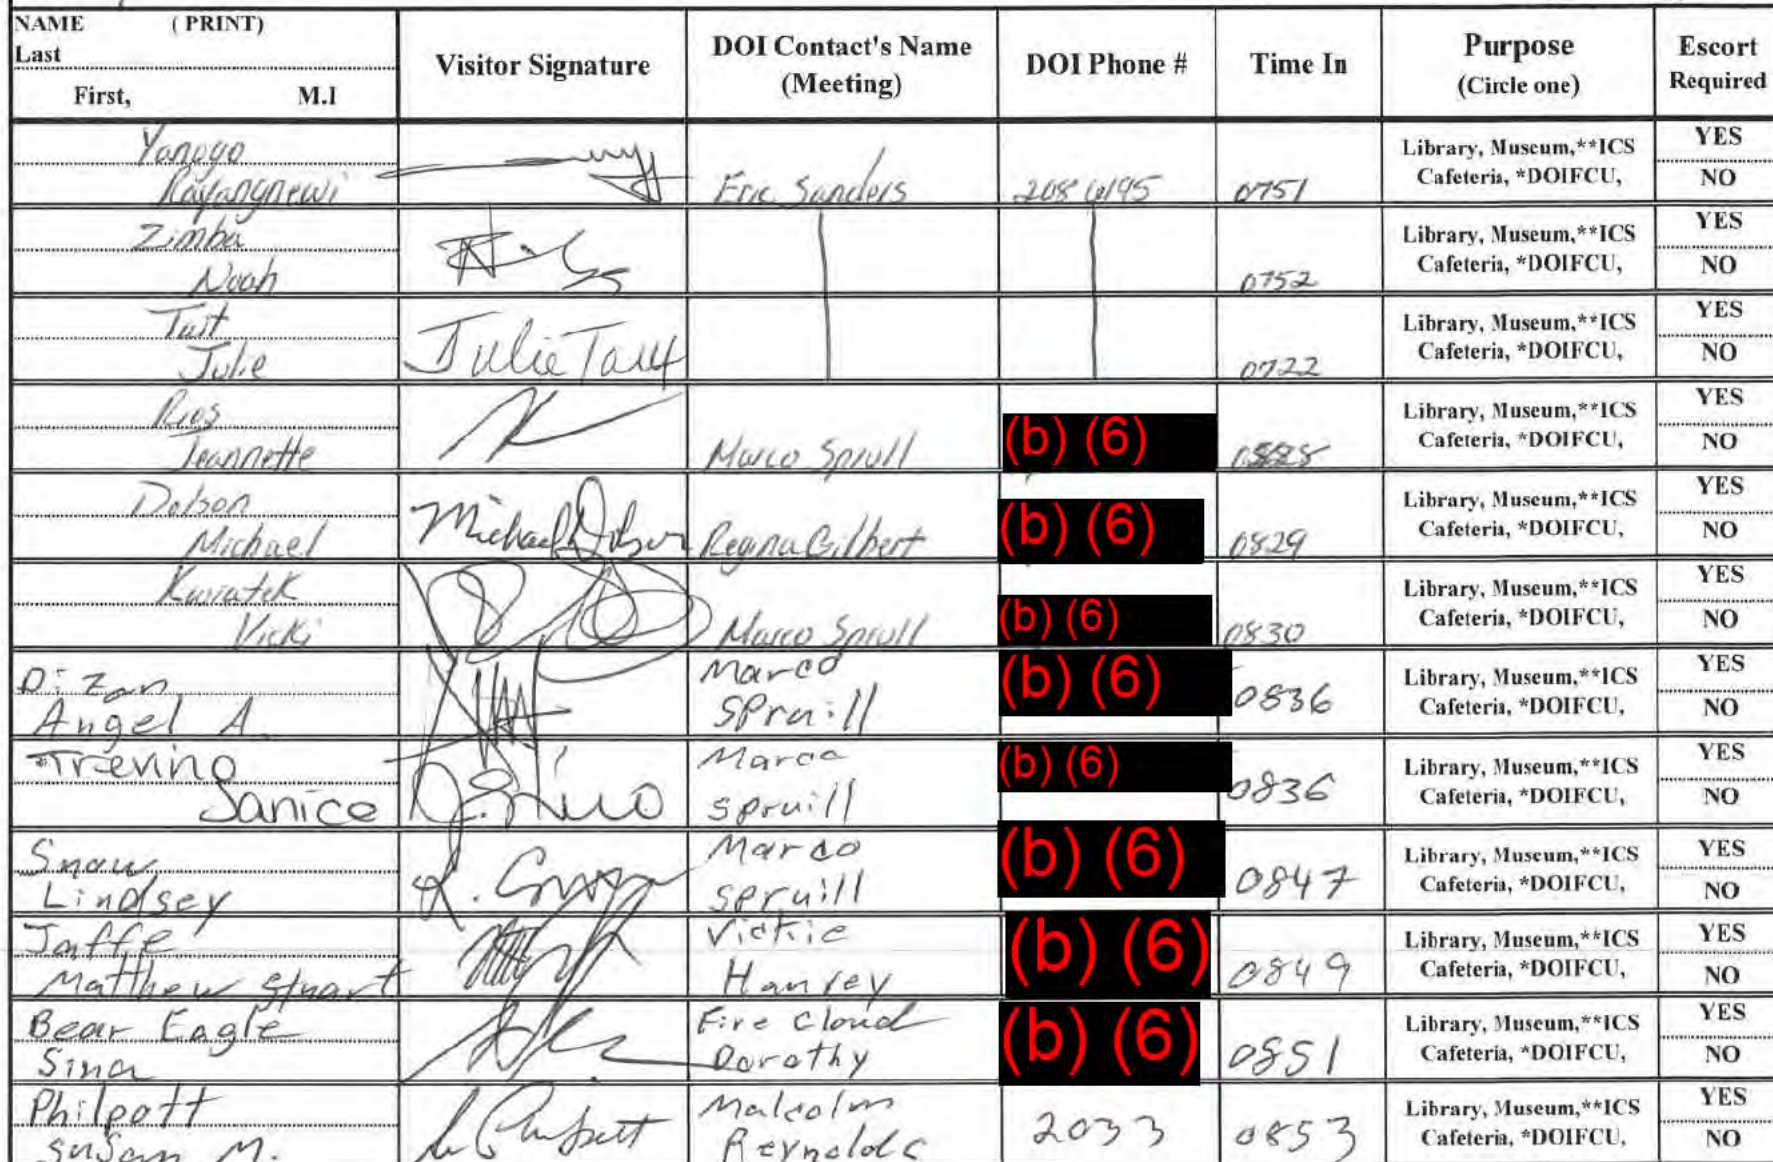 NAME ( PRINT)
Last
First, M.I
Visitor Signature
DOI Contact's Name
(Meeting)
DOI Phone #
Time In
Purpose
(Circle one)
Escort
Required
Yonogo
Eric Sanders 208 6195 0751
Library, Museum,**ICS
Cafeteria, *DOIFCU,
YES
NO
Zimba
Noah
0752
Library, Museum,**ICS
Cafeteria, *DOIFCU,
YES
NO
Tait
Julie
Julie Tait
0722
Library, Museum,**ICS
Cafeteria, *DOIFCU,
YES
NO
Rios
Jeannette
Marco Spruill (b) (6)
Library, Museum,**ICS
Cafeteria, *DOIFCU,
YES
NO
Dolson
Michael
Michael Dolson
Regina Gilbert (b) (6) 0829
Library, Museum,**ICS
Cafeteria, *DOIFCU,
YES
NO
Kwiatek
Vicki
Marco Spruill (b) (6) 0830
Library, Museum,**ICS
Cafeteria, *DOIFCU,
YES
NO
Dizon
Angel A.
Marco
Spruill
(b) (6) 0836
Library, Museum,**ICS
Cafeteria, *DOIFCU,
YES
NO
Trevino
Janice
Marco
spruill
(b) (6) 0836
Library, Museum,**ICS
Cafeteria, *DOIFCU,
YES
NO
Snow
Lindsey
Marco
spruill
(b) (6) 0847
Library, Museum,**ICS
Cafeteria, *DOIFCU,
YES
NO
Jaffe
Matthew Stuart
Vickie
Hanvey
(b) (6) 0849
Library, Museum,**ICS
Cafeteria, *DOIFCU,
YES
NO
Bear Eagle
Sina
Fire Cloud
Dorothy
(b) (6) 0851
Library, Museum,**ICS
Cafeteria, *DOIFCU,
YES
NO
Philpott
Susan M.
Malcolm
Reynolds
2033 0853
Library, Museum,**ICS
Cafeteria, *DOIFCU,
YES
NO